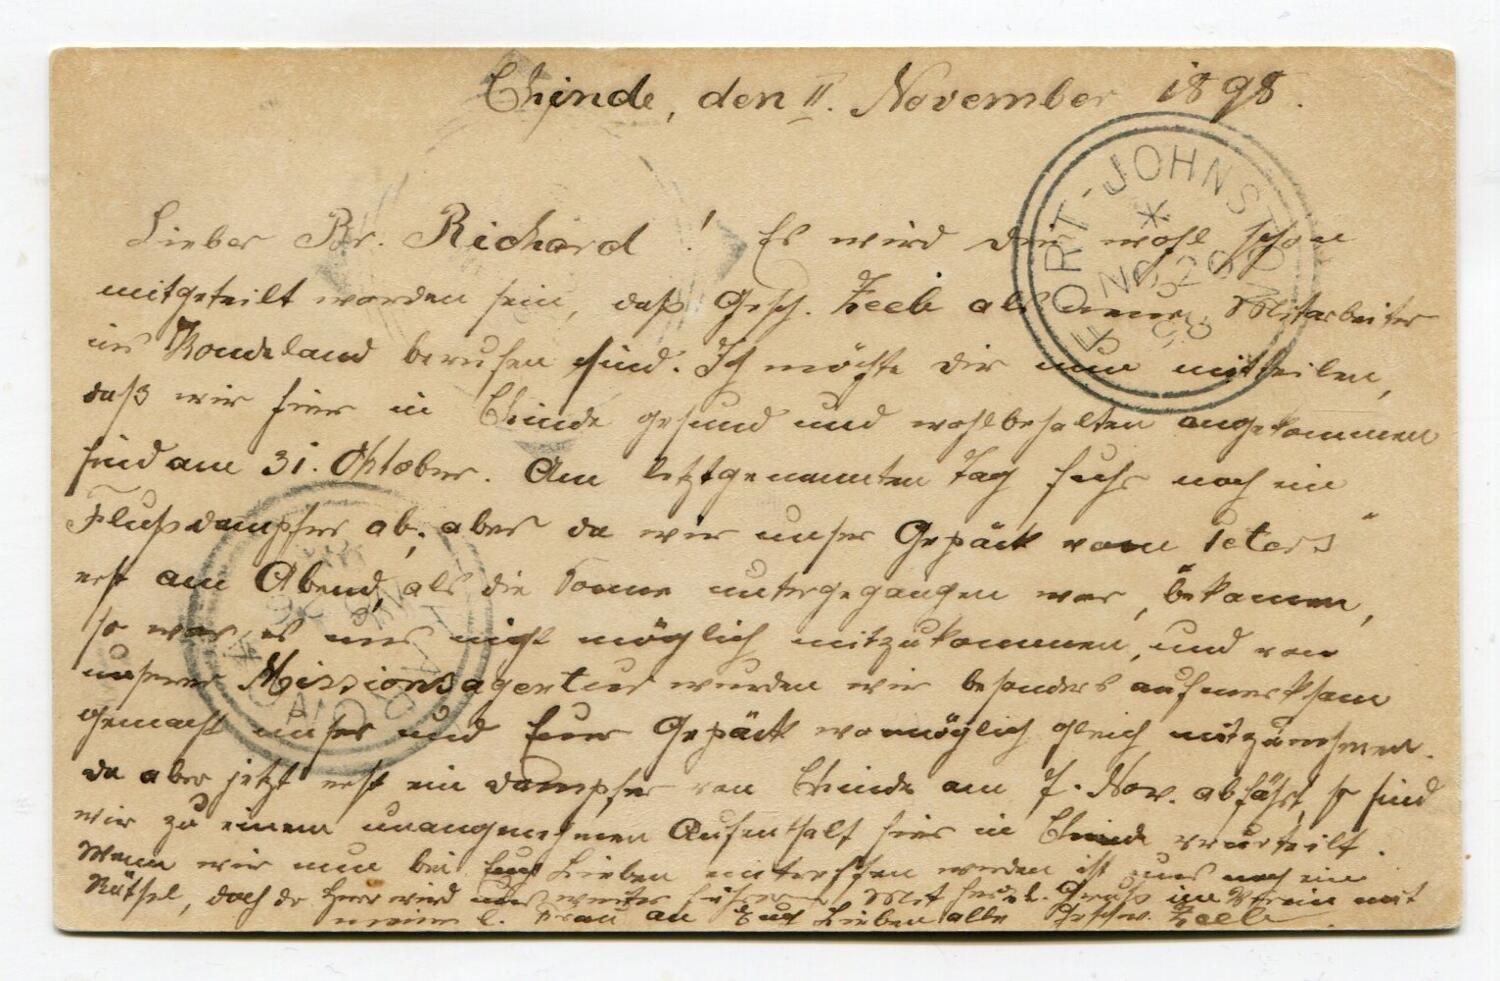 Chinde, den II. November 1898.
Lieber Br. Richard! Es wird Dir wohl schon
mitgeteilt worden sein, daß Gesch. Zeeb als neue Mitarbeiter
ins Kondeland berufen sind. Ich möchte Dir nun mitteilen,
daß wir hier in Chinde gesund und wohlbehalten angekommen
sind am 31. Oktober. Am letztgenannten Tag fuhr noch ein
Flußdampfer ab, aber da wir unser Gepäck vom "Peters"
erst am Abend, als die Sonne untergegangen war, bekamen,
so war es uns nicht möglich mitzukommen, und von
unserer Missionsagentur wurden wir besonders aufmerksam
gemacht unser und Euer Gepäck womöglich gleich mitzunehmen.
Da aber jetzt erst ein Dampfer von Chinde am 7. Nov. abfährt, so sind
wir zu einem unangenehmen Aufenthalt hier in Chinde verurteilt.
Wann wir nun bei Euch Lieben eintreffen werden ist uns noch ein
Rätsel, doch der Herr wird uns weiter führen. Mit herzl. Gruß im Verein mit
meiner l. Frau an Euch Lieben alle Geschw. Zeeb
FORT-JOHNSTON
NO 26
98